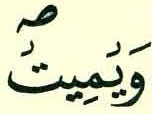 وَيُمِيتُۖ